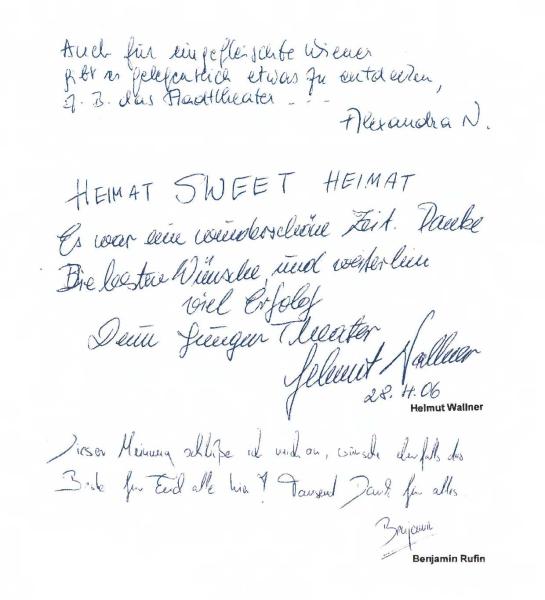 Auch für eingefleischte Wiener
gibt es gelegentlich etwas zu entdecken,
z. B. das Stadttheater ...
Alexandra N.
HEIMAT SWEET HEIMAT
Es war eine wunderschöne Zeit. Danke
Die besten Wünsche und weiterhin
viel Erfolg
Dem Jungen Theater
Helmut Wallner
28. 4. 06
Helmut Wallner
Dieser Meinung schließe ich mich an, wünsche ebenfalls das
Beste für Euch alle hier! Tausend Dank für alles
Benjamin
Benjamin Rufin